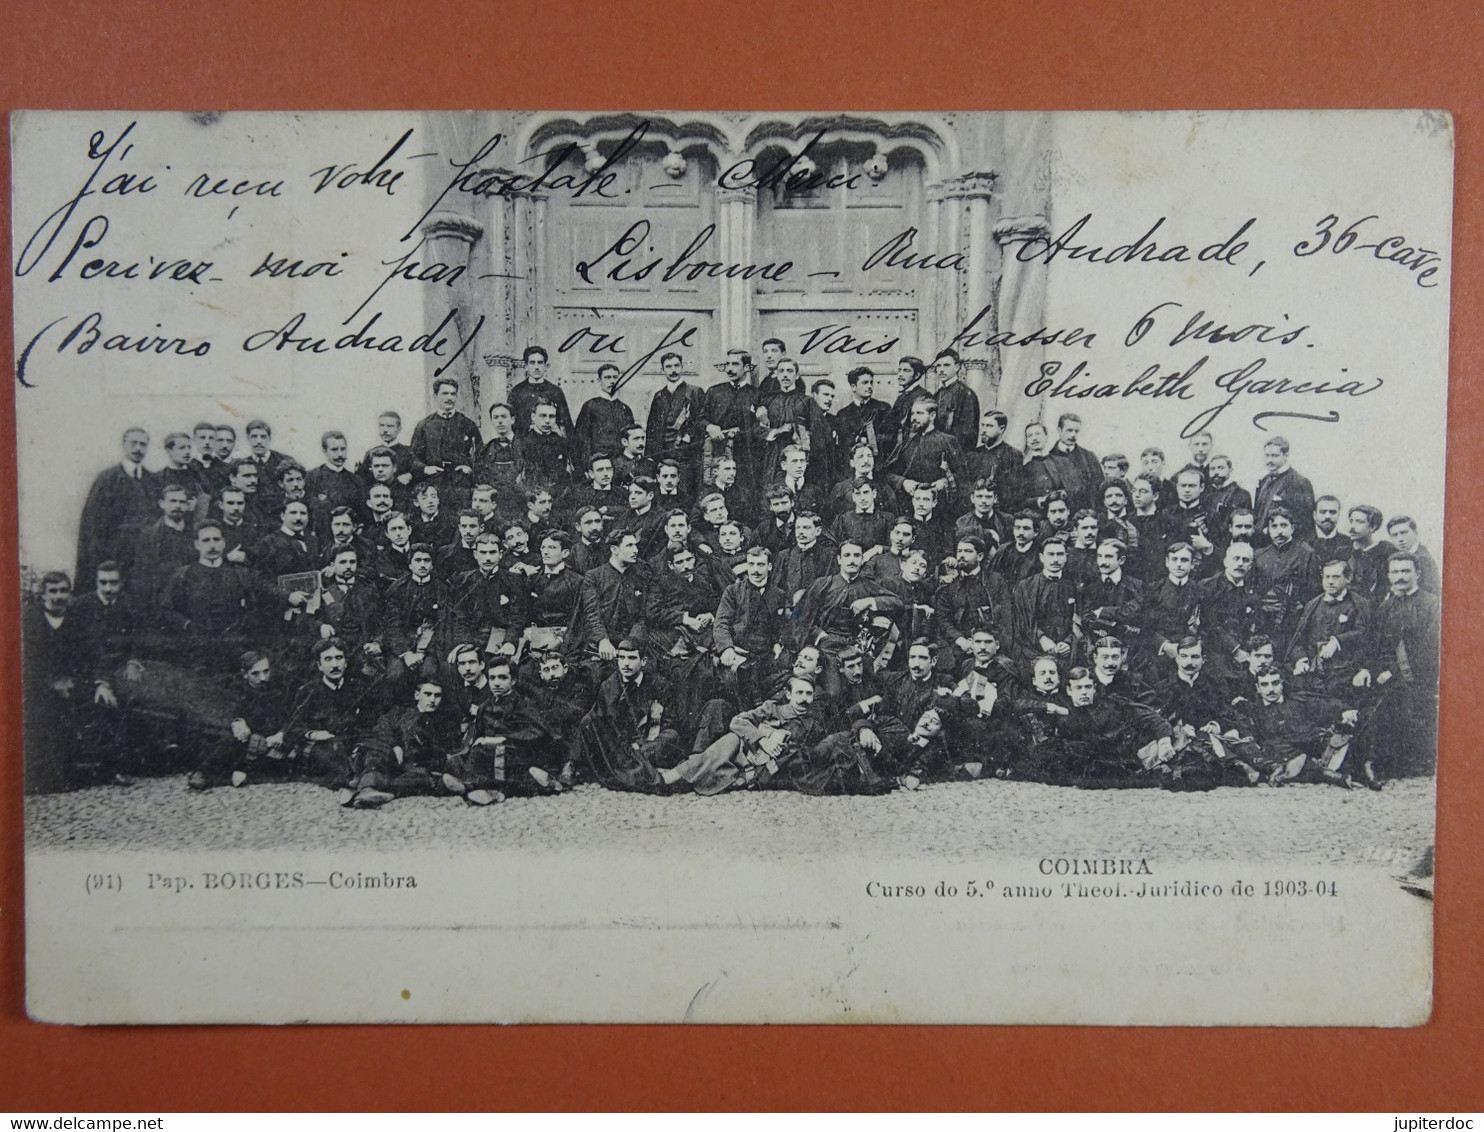 J'ai reçu votre postale. – Merci.
Écrivez-moi par – Lisbonne – Rua Andrade, 36-cave
(Bairro Andrade) où je vais passer 6 mois.
Elisabeth Garcia
(91) Pap. BORGES—Coimbra
COIMBRA
Curso do 5.º anno Theol.-Juridico de 1903-04
jupiterdoc